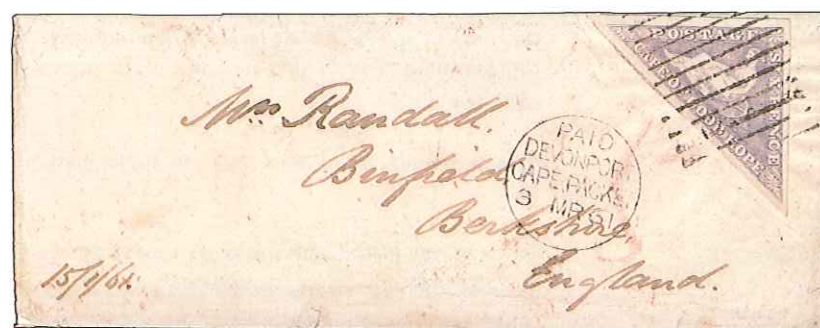 POSTAGE
SIX PENCE
CAPE OF GOOD HOPE
Mrs Randall.
Binfield
Berkshire,
England.
PAID
DEVONPORT
CAPE.PACKET
3 MR 61
15/1/61.